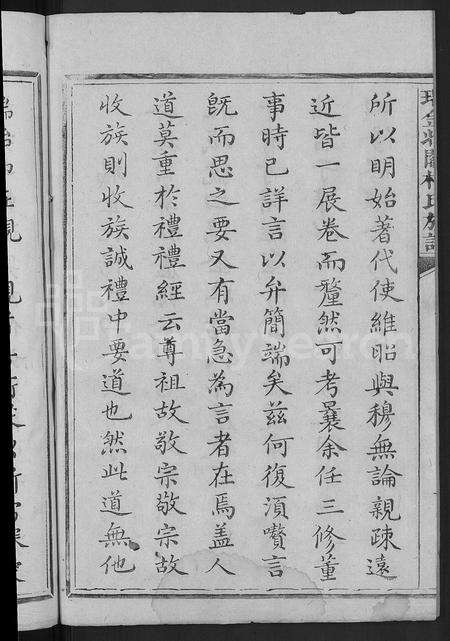 所以明始著代使維昭與穆無論親疎遠
近皆一展卷而釐然可考曩余任三修董
事時已詳言以弁簡端矣茲何復湏嚽言
旣而思之要又有當急為言者在焉盖人
道莫重於禮禮經云尊祖故敬宗敬宗故
收族則收族誠禮中要道也然此道無他